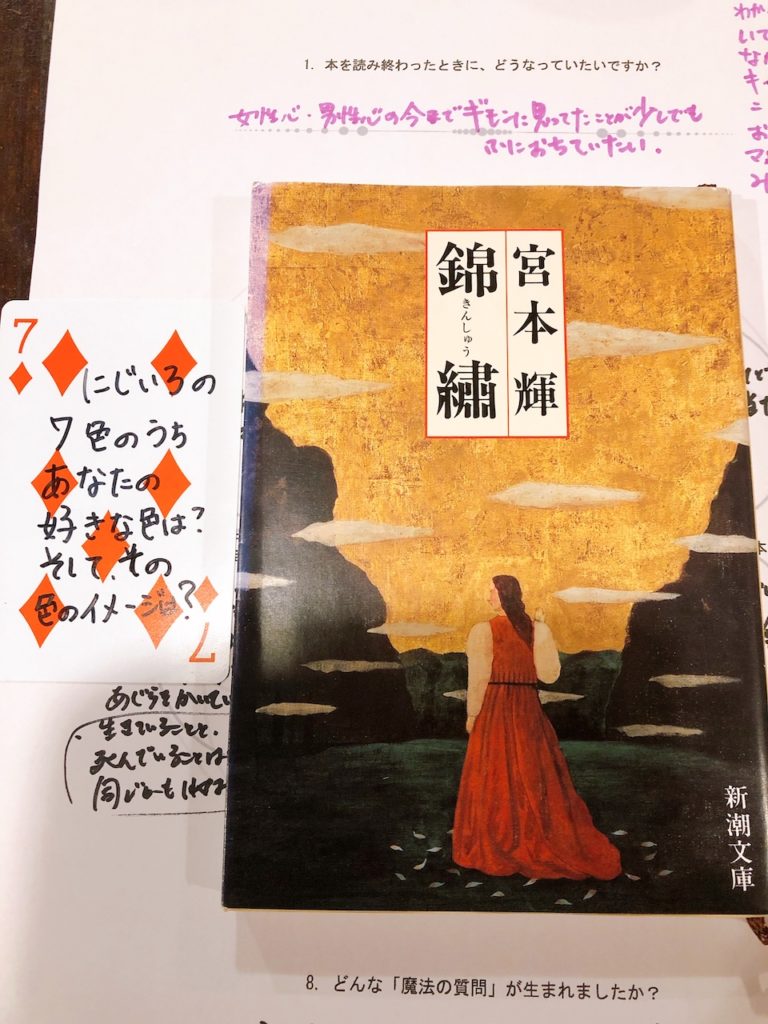 1. 本を読み終わったときに、どうなっていたいですか？
女性心・男性心の今までギモンに思ってたことが少しでも
におちていたい。
わか
いて
な
キ
お
マ
み
宮本 輝
錦繡
きんしゅう
新潮文庫
7
にじいろの
7色のうち
あなたの
好きな色は？
そして、その
色のイメージは？
7
あじうをかいてい
生きていることと、
死んでいることは
同じかもしれな
8. どんな「魔法の質問」が生まれましたか？